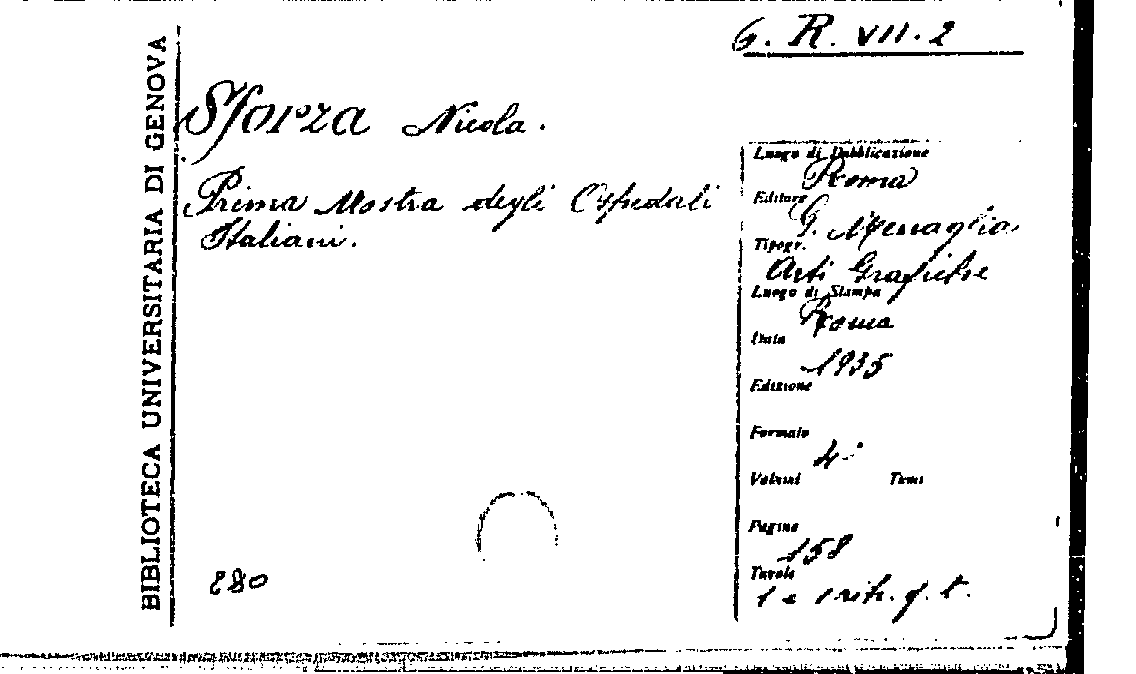 G. R. VII. 2
BIBLIOTECA UNIVERSITARIA DI GENOVA
Sforza Nicola.
Prima Mostra degli Ospedali
Italiani.
Luogo di Pubblicazione
Roma
Editore
G. Menaglia
Tipogr.
Arti Grafiche
Luogo di Stampa
Roma
Data
1935
Edizione
Formato
4°
Volumi Tomi
Pagine
158
Tavole
1 e 1 ritr. f. t.
280